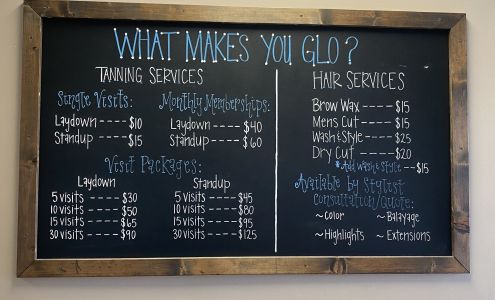 WHAT MAKES YOU GLO?
TANNING SERVICES
Single Visits:
Laydown ---- $10
Standup ---- $15
Monthly Memberships:
Laydown ---- $40
Standup ---- $60
Visit Packages:
Laydown
5 visits ---- $30
10 visits ---- $50
15 visits ---- $65
30 visits ---- $90
Standup
5 visits ---- $45
10 visits ---- $80
15 visits ---- $95
30 visits ---- $125
HAIR SERVICES
Brow Wax ---- $15
Mens Cut ---- $15
Wash & Style ---- $25
Dry Cut ---- $20
*Add wash & style -- $15
Available by Stylist
consultation/quote:
~Color ~Balayage
~Highlights ~Extensions